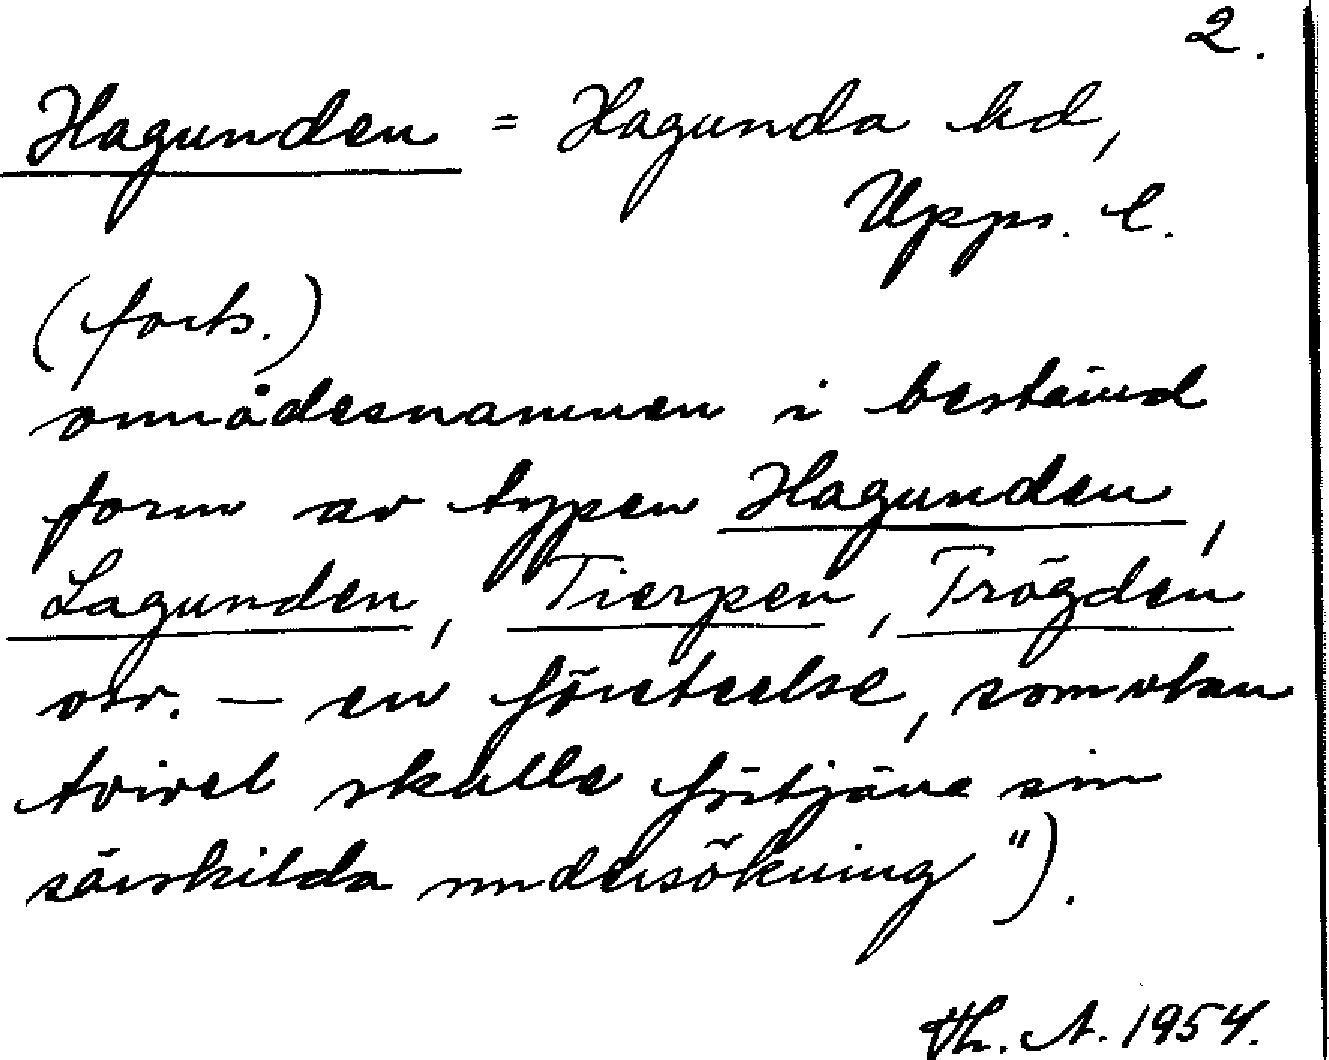 2.
Hagunden = Hagunda hd,
Upps. l.
(forts.)
områdesnamnen i bestämd
form av typen Hagunden,
Lagunden, Tierpen, Trögden
osv. — en företeelse, som utan
tvivel skulle förtjäna sin
särskilda undersökning").
Th. A. 1954.